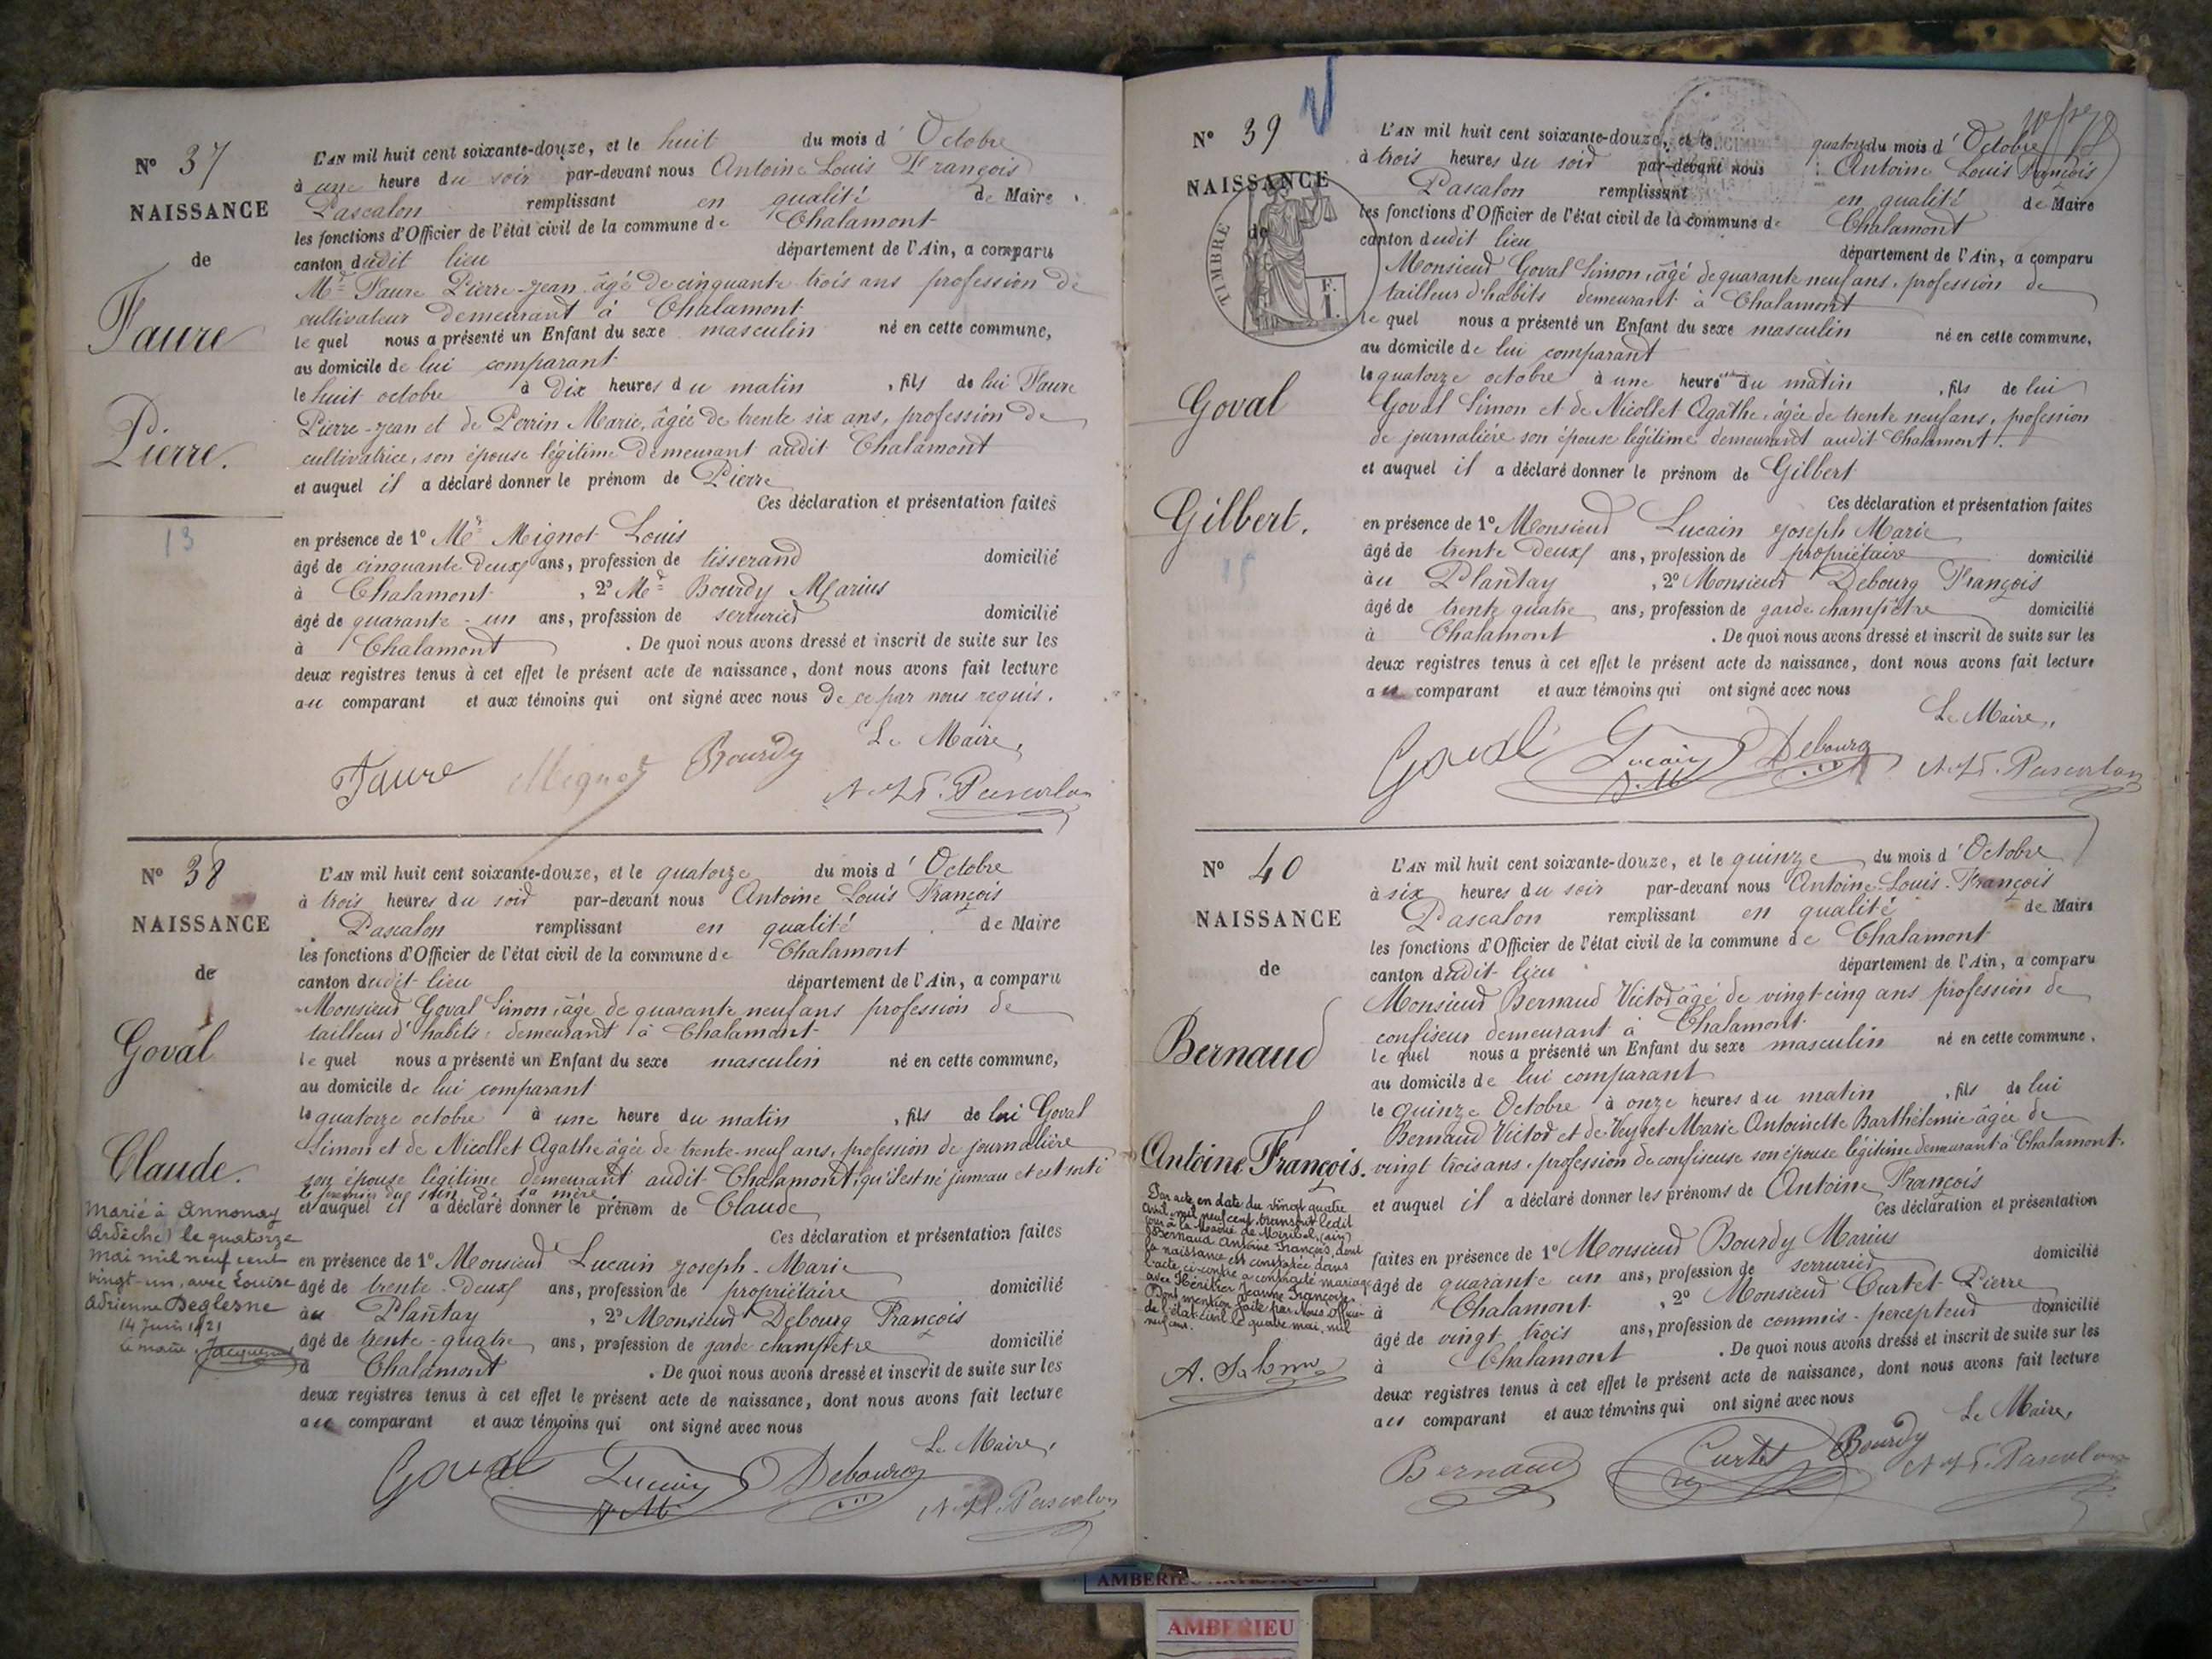 N° 37
NAISSANCE
de
Faure
Pierre.
13
L'AN mil huit cent soixante-douze, et le huit du mois d' Octobre
à une heure du soir par-devant nous Antoine Louis François
Pascalon remplissant en qualité de Maire
les fonctions d'Officier de l'état civil de la commune de Chalamont
canton dudit lieu département de l'Ain, a comparu
Mr Faure Pierre-Jean âgé de cinquante trois ans profession de
cultivateur demeurant à Chalamont
le quel nous a présenté un Enfant du sexe masculin né en cette commune,
au domicile de lui comparant
le huit octobre à dix heures du matin , fils de lui Faure
Pierre-Jean et de Perrin Marie, âgée de trente six ans, profession de
cultivatrice, son épouse légitime demeurant audit Chalamont
et auquel il a déclaré donner le prénom de Pierre
Ces déclaration et présentation faites
en présence de 1° Mr Mignot Louis
âgé de cinquante deux ans, profession de tisserand domicilié
à Chalamont , 2° Mr Bourdy Marius
âgé de quarante-un ans, profession de serrurier domicilié
à Chalamont . De quoi nous avons dressé et inscrit de suite sur les
deux registres tenus à cet effet le présent acte de naissance, dont nous avons fait lecture
au comparant et aux témoins qui ont signé avec nous de ce par nous requis.
Le Maire,
Faure Mignot Bourdy Pascalon
N° 38
NAISSANCE
de
Goval
Claude.
Marié à Annonay
(Ardèche) le quatorze
mai mil neuf cent
vingt-un, avec Louise
Adrienne Deglesne
14 Juin 1921
Le maire,
L'AN mil huit cent soixante-douze, et le quatorze du mois d' Octobre
à trois heures du soir par-devant nous Antoine Louis François
Pascalon remplissant en qualité de Maire
les fonctions d'Officier de l'état civil de la commune de Chalamont
canton dudit lieu département de l'Ain, a comparu
Monsieur Goval Simon, âgé de quarante neuf ans profession de
tailleur d'habits demeurant à Chalamont
le quel nous a présenté un Enfant du sexe masculin né en cette commune,
au domicile de lui comparant
le quatorze octobre à une heure du matin , fils de lui Goval
Simon et de Nicollet Agathe âgée de trente-neuf ans, profession de journalière
son épouse légitime demeurant audit Chalamont, qu'il est né jumeau et est sorti
le premier du sein de sa mère
et auquel il a déclaré donner le prénom de Claude
Ces déclaration et présentation faites
en présence de 1° Monsieur Lucain Joseph-Marie
âgé de trente-deux ans, profession de propriétaire domicilié
au Plantay , 2° Monsieur Debourg François
âgé de trente-quatre ans, profession de garde champêtre domicilié
à Chalamont . De quoi nous avons dressé et inscrit de suite sur les
deux registres tenus à cet effet le présent acte de naissance, dont nous avons fait lecture
au comparant et aux témoins qui ont signé avec nous
Le Maire,
Goval Lucain J. M. Debourg Pascalon
N° 39
NAISSANCE
de
TIMBRE
F.
1.
Goval
Gilbert.
15
L'AN mil huit cent soixante-douze, et le quatorze du mois d' Octobre
à trois heures du soir par-devant nous Antoine Louis François
Pascalon remplissant en qualité de Maire
les fonctions d'Officier de l'état civil de la commune de Chalamont
canton dudit lieu département de l'Ain, a comparu
Monsieur Goval Simon, âgé de quarante neuf ans, profession de
tailleur d'habits demeurant à Chalamont
le quel nous a présenté un Enfant du sexe masculin né en cette commune,
au domicile de lui comparant
le quatorze octobre à une heure du matin , fils de lui
Goval Simon et de Nicollet Agathe, âgée de trente neuf ans, profession
de journalière son épouse légitime demeurant audit Chalamont.
et auquel il a déclaré donner le prénom de Gilbert
Ces déclaration et présentation faites
en présence de 1° Monsieur Lucain Joseph Marie
âgé de trente deux ans, profession de propriétaire domicilié
au Plantay , 2° Monsieur Debourg François
âgé de trente quatre ans, profession de garde champêtre domicilié
à Chalamont . De quoi nous avons dressé et inscrit de suite sur les
deux registres tenus à cet effet le présent acte de naissance, dont nous avons fait lecture
au comparant et aux témoins qui ont signé avec nous
Le Maire,
Goval Lucain J. M. Debourg Pascalon
N° 40
NAISSANCE
de
Bernaud
Antoine François.
Par acte en date du vingt quatre
avril mil neuf cent, transcrit ledit
jour à la Mairie de Miribel, (Ain)
Bernaud Antoine François, dont
la naissance est constatée dans
l'acte ci-contre a contracté mariage
avec Héritier Jeanne Françoise.
Dont mention faite par Nous Officier
de l'état civil le quatre mai, mil
neuf cent.
L'AN mil huit cent soixante-douze, et le quinze du mois d' Octobre
à six heures du soir par-devant nous Antoine-Louis-François
Pascalon remplissant en qualité de Maire
les fonctions d'Officier de l'état civil de la commune de Chalamont
canton dudit lieu département de l'Ain, a comparu
Monsieur Bernaud Victor âgé de vingt-cinq ans profession de
confiseur demeurant à Chalamont
le quel nous a présenté un Enfant du sexe masculin né en cette commune,
au domicile de lui comparant
le quinze Octobre à onze heures du matin , fils de lui
Bernaud Victor et de Veyret Marie Antoinette Barthélemie âgée de
vingt trois ans, profession de confiseuse son épouse légitime demeurant à Chalamont.
et auquel il a déclaré donner les prénoms de Antoine François
Ces déclaration et présentation
faites en présence de 1° Monsieur Bourdy Marius
âgé de quarante un ans, profession de serrurier domicilié
à Chalamont , 2° Monsieur Curtet Pierre
âgé de vingt trois ans, profession de commis-percepteur domicilié
à Chalamont . De quoi nous avons dressé et inscrit de suite sur les
deux registres tenus à cet effet le présent acte de naissance, dont nous avons fait lecture
au comparant et aux témoins qui ont signé avec nous
Le Maire,
Bernaud Curtet Bourdy Pascalon
AMBERIEU